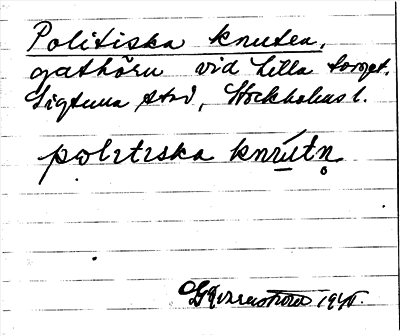 Politiska knuten,
gathörn vid Lilla torget.
Sigtuna std, Stockholms l.
politiska knutn̥
1940.